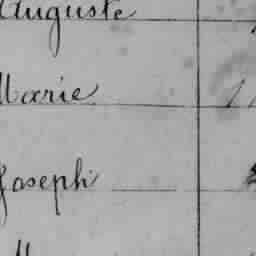 Auguste
Marie
Joseph